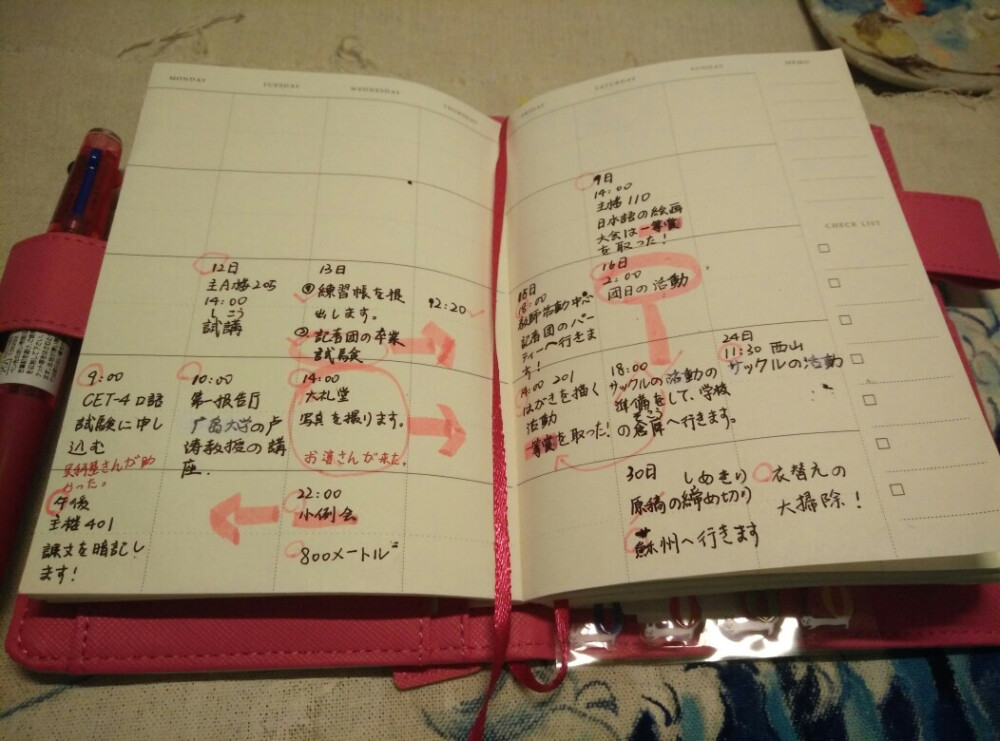 MONDAY
TUESDAY
WEDNESDAY
THURSDAY
FRIDAY
SATURDAY
SUNDAY
MEMO
9日
14:00
主楼110
日本語の絵画
大会は一等賞
を取った!
CHECK LIST
12日
主A楼205
14:00
しこう
試講
13日
①練習帳を提
出します。
②記者団の卒業
試験
12:20
15日
18:00
教師活動中心
記者団のパー
ティーへ行きま
す!
16日
2:00
団日の活動
9:00
CET-4口語
試験に申し
込む
さんが助
かった。
10:00
第一报告厅
广岛大学の卢
涛教授の講
座.
14:00
大礼堂
写真を撮ります。
お濤さんが来た。
14:00 201
はがきを描く
活動
一等賞を取った!
18:00
サックルの活動の
準備をして、学校
の倉庫へ行きます。
24日
11:30 西山
サックルの活動
午後
主楼401
課文を暗記し
ます!
22:00
小例会
800メートル
30日 しめきり
原稿の締め切り
蘇州へ行きます
衣替えの
大掃除!